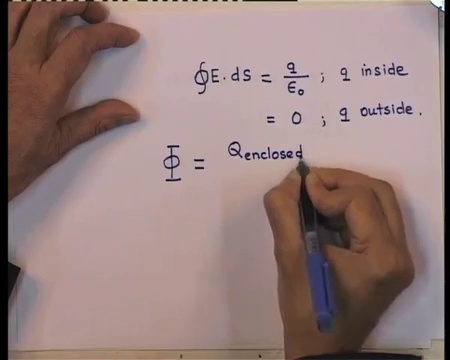 ∮E.ds = q/ε₀ ; q inside
= 0 ; q outside.
Φ = Qenclosed